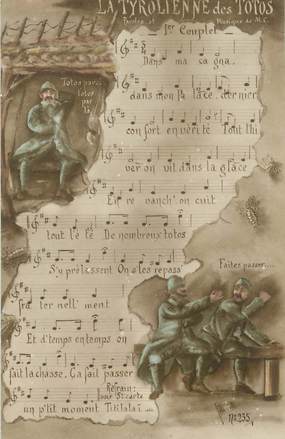 LA TYROLIENNE des TOTOS
Paroles et Musique de M.C.
1er Couplet
Dans ma ca gna..
Totos par ci
totos
par
là
dans mon pa lace dernier
con fort en vérité Tout l'hi
ver on vit dans la glace
En re vanch' on cuit
tout l'é té De nombreux totos
S'y prélassent On s'les repass'
Faites passer....
fra ter nell' ment
Et d'temps en temps on
fait la chasse. Ça fait passer
Refrain:
sur 2e carte
un p'tit moment Titilalaï ....
No 235